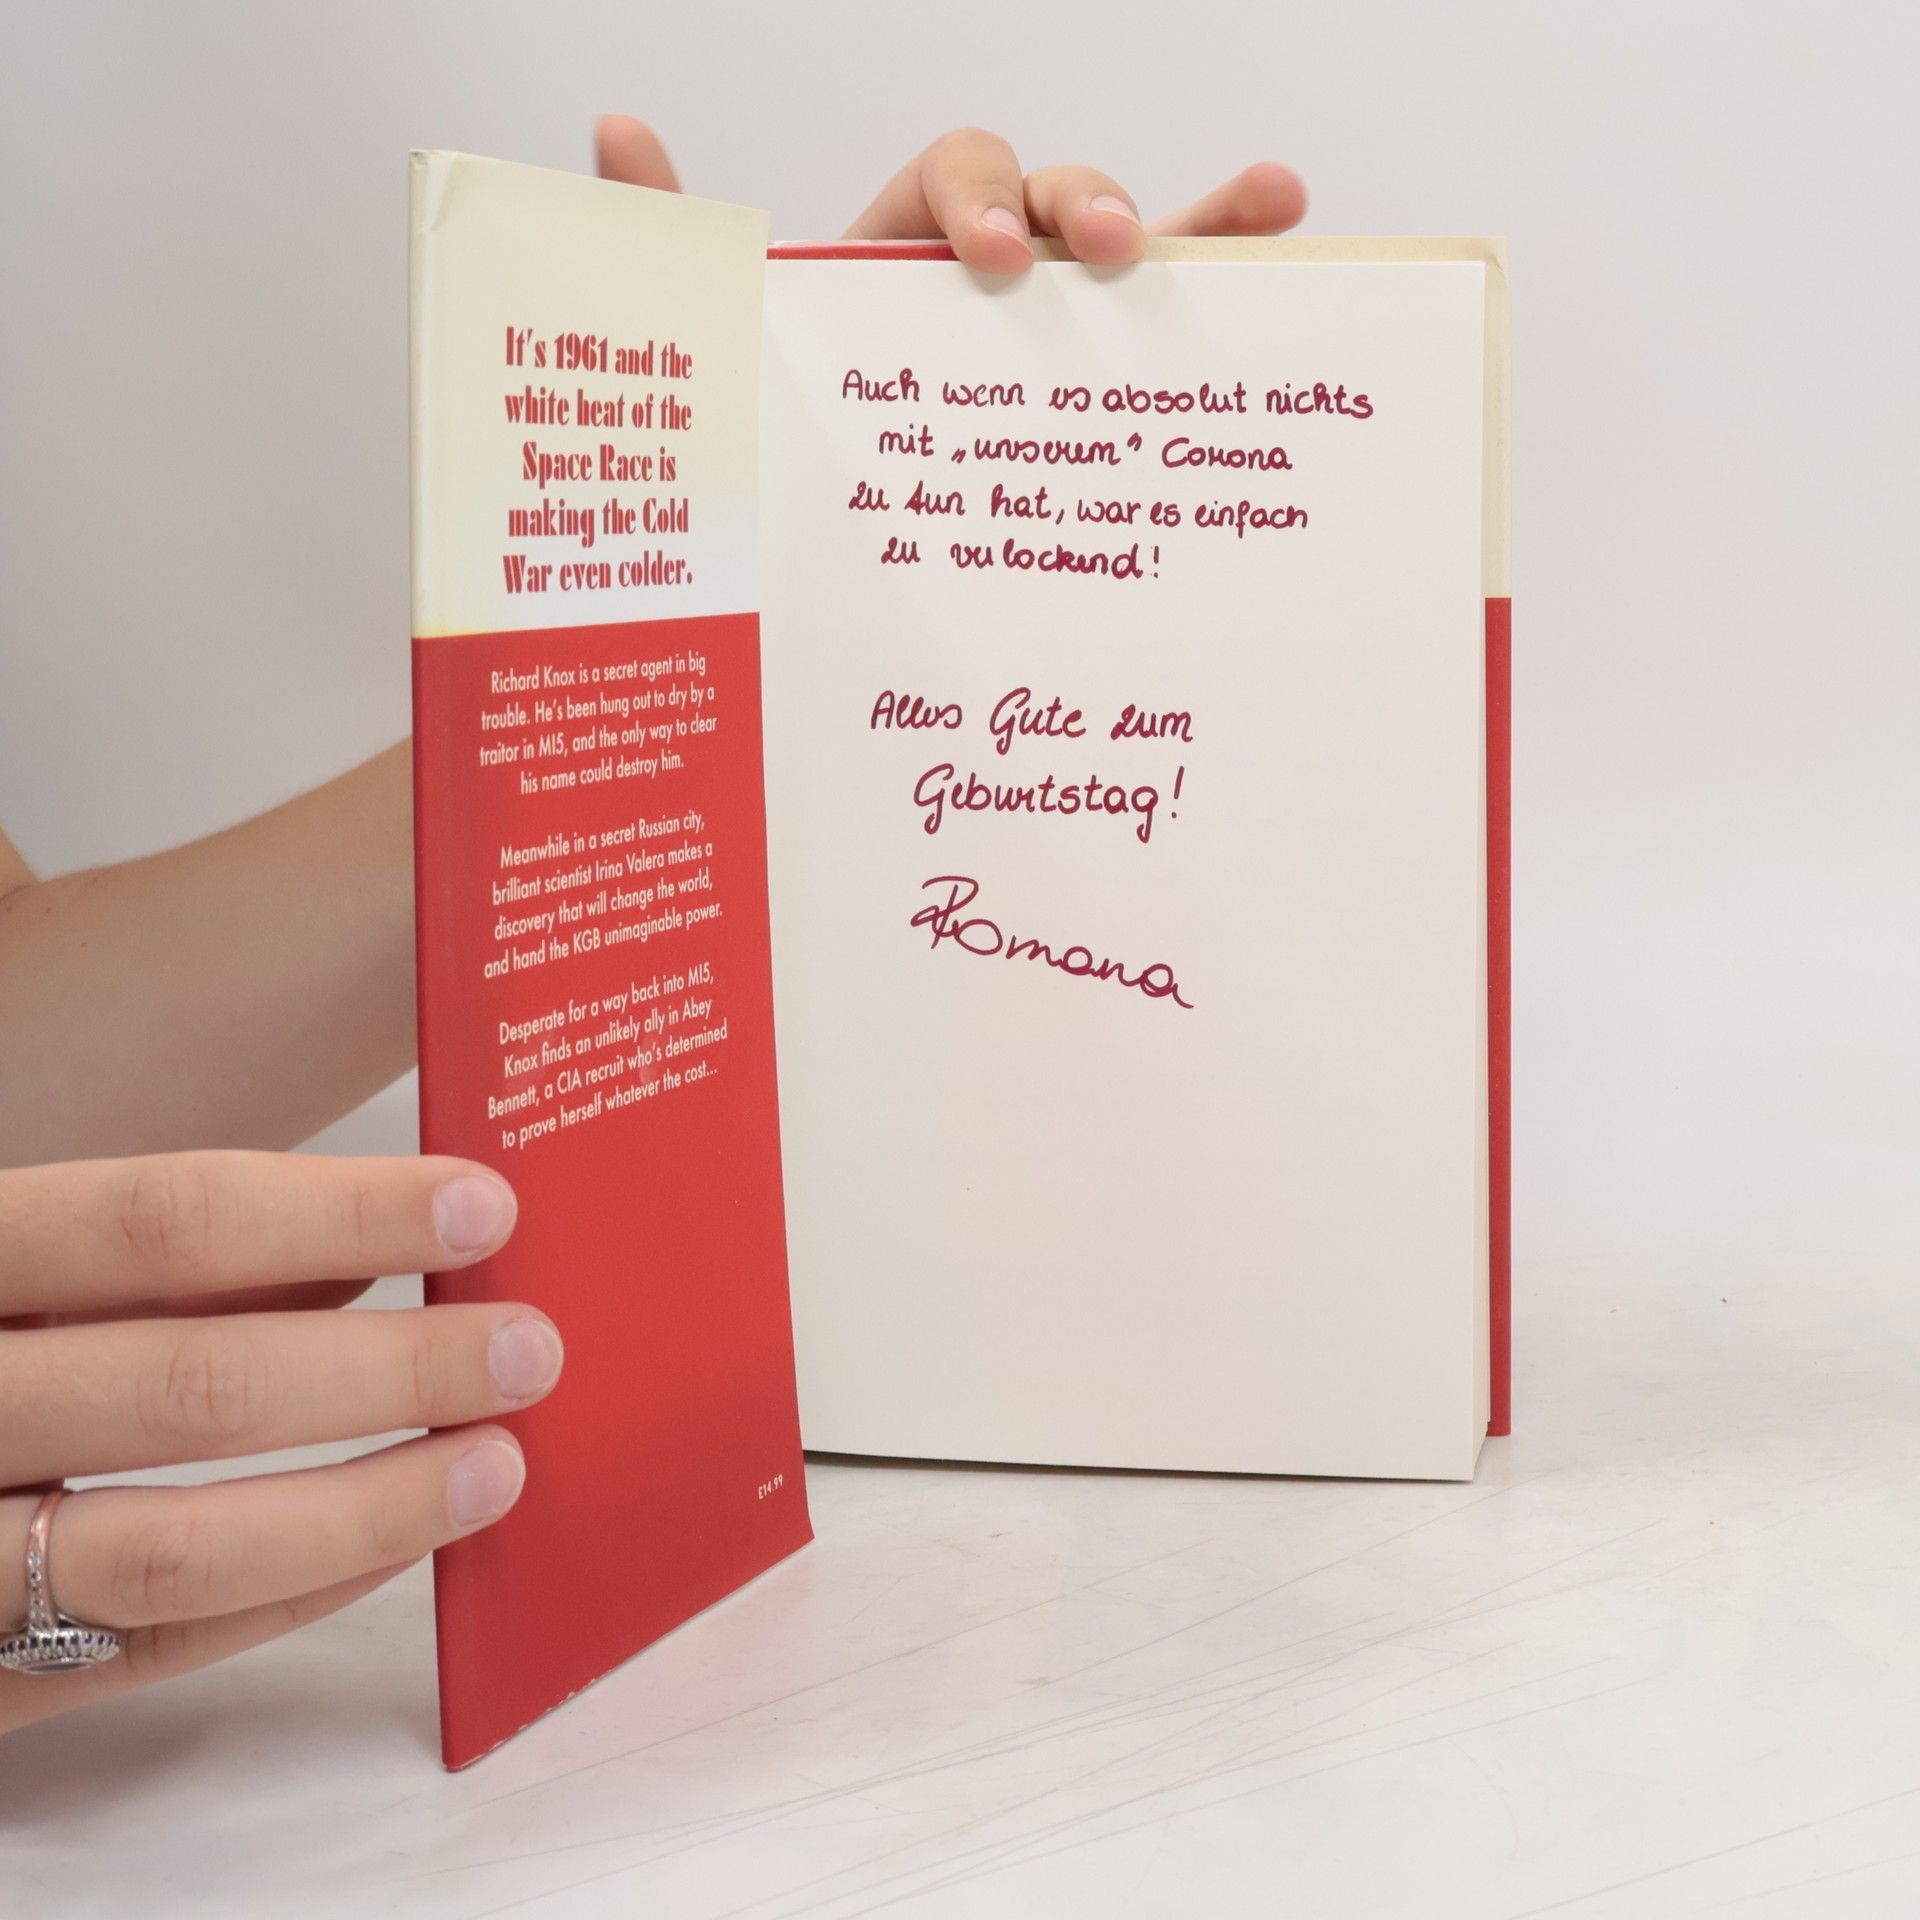 It's 1961 and the
white heat of the
Space Race is
making the Cold
War even colder.
Richard Knox is a secret agent in big
trouble. He's been hung out to dry by a
traitor in MI5, and the only way to clear
his name could destroy him.
Meanwhile in a secret Russian city,
brilliant scientist Irina Valera makes a
discovery that will change the world,
and hand the KGB unimaginable power.
Desperate for a way back into MI5,
Knox finds an unlikely ally in Abey
Bennett, a CIA recruit who's determined
to prove herself whatever the cost...
£14.99
Auch wenn es absolut nichts
mit „unserem“ Corona
zu tun hat, war es einfach
zu verlockend!
Alles Gute zum
Geburtstag!
Romana